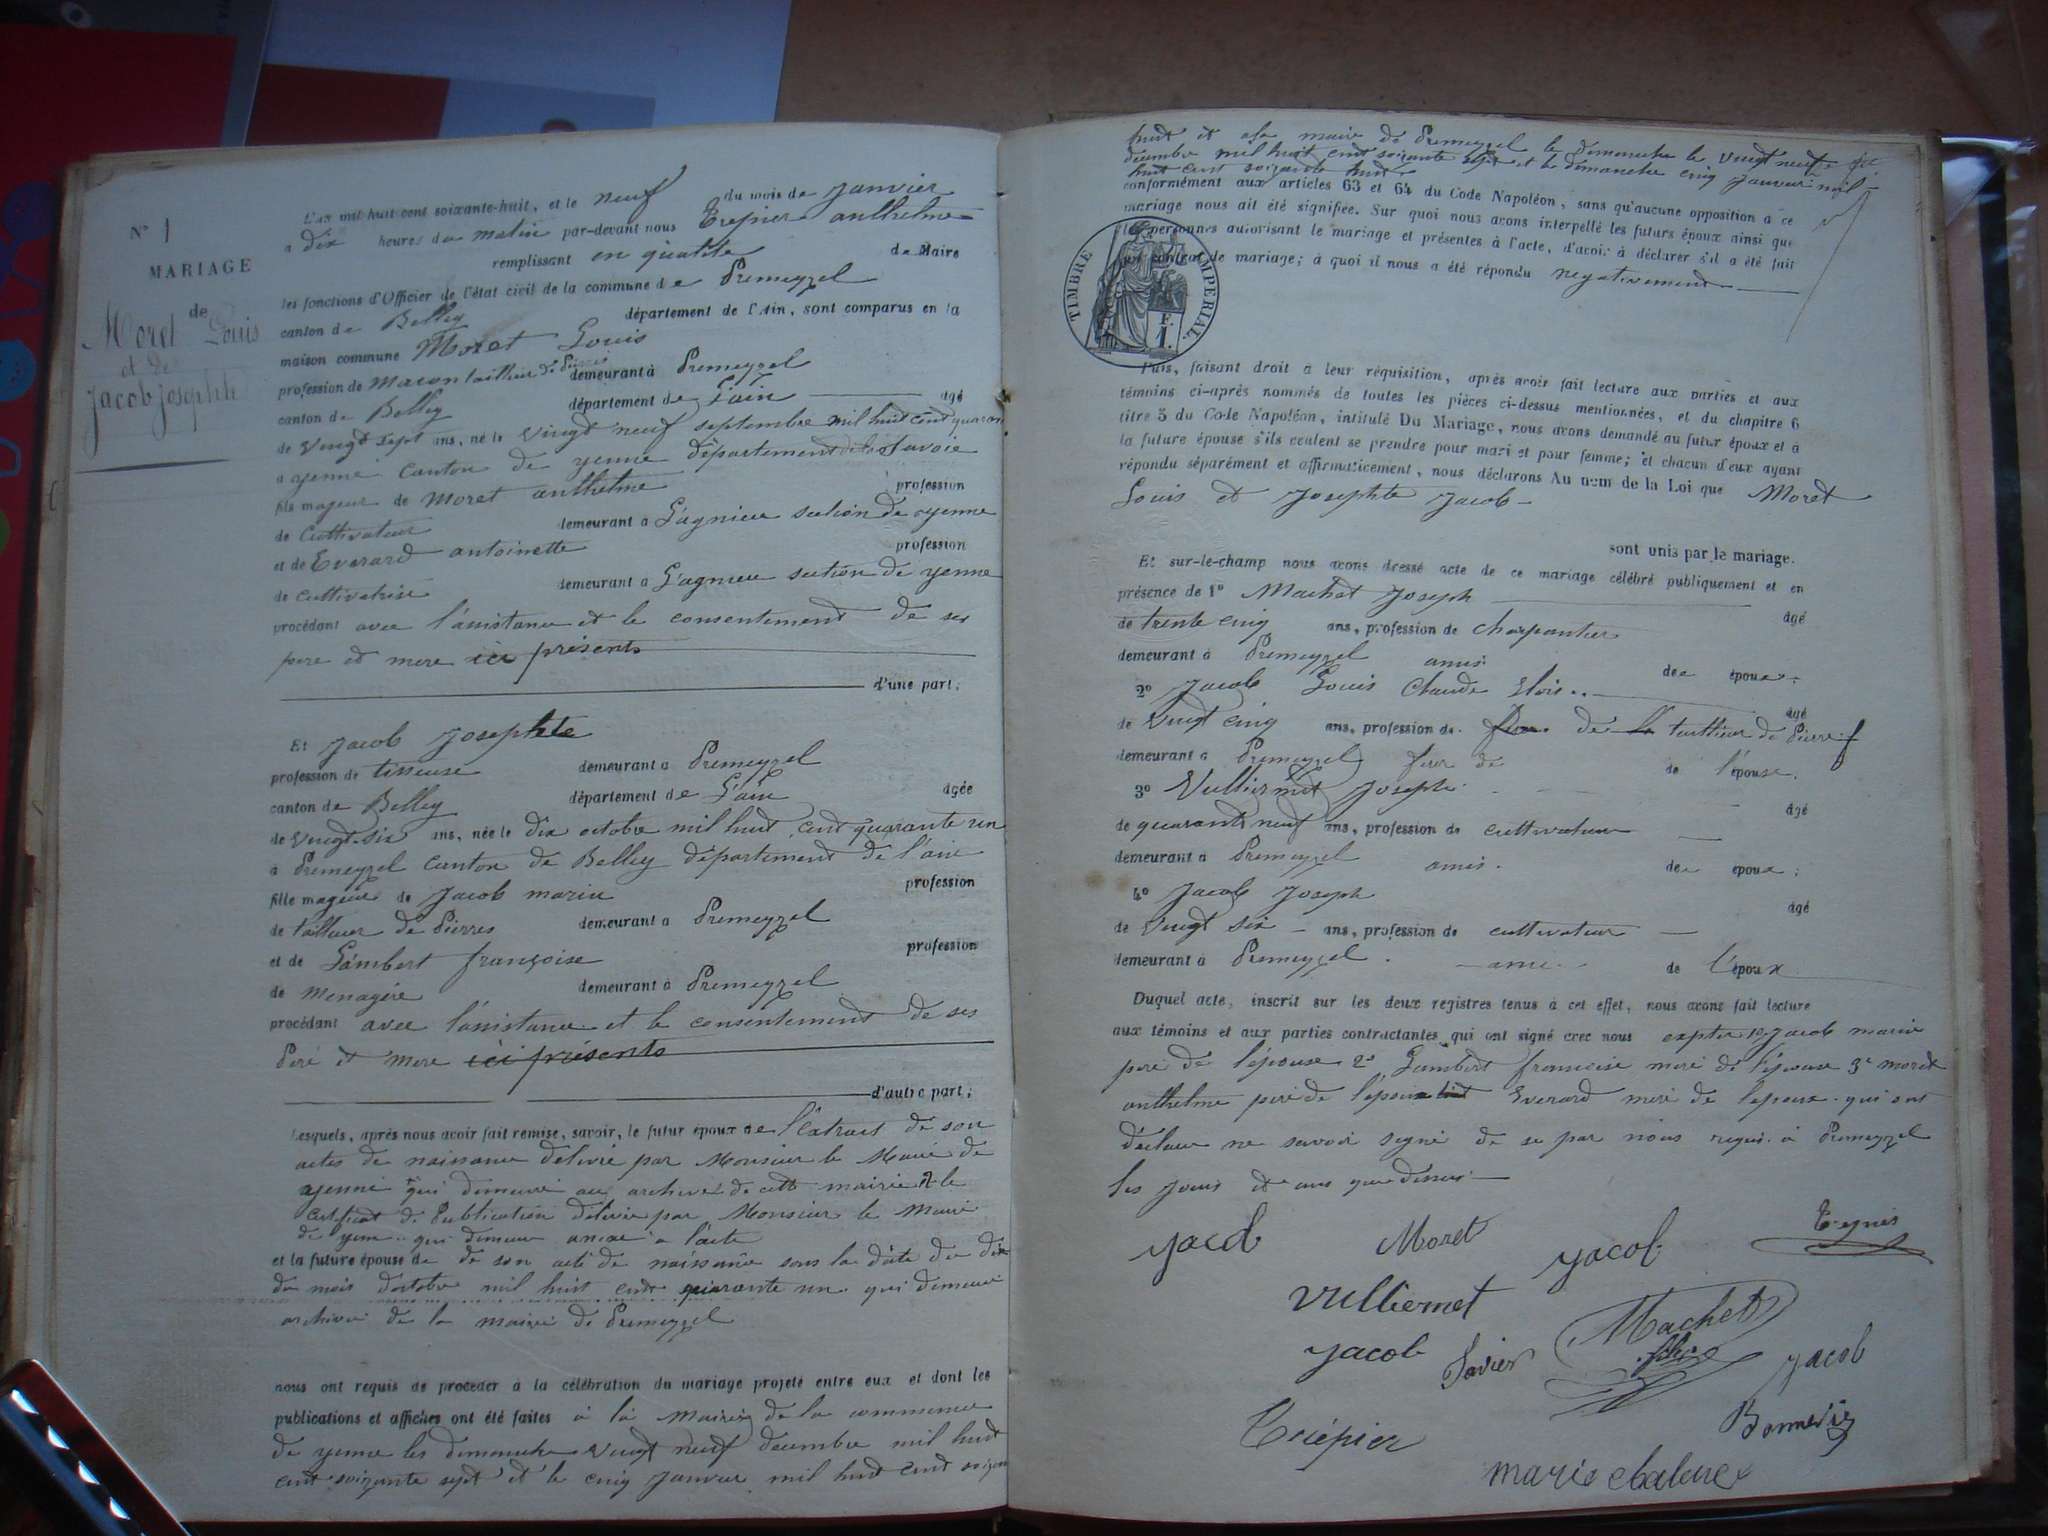 N° 1
MARIAGE
de
Moret Louis
et de
Jacob Josephte
L'an mil huit cent soixante-huit, et le neuf du mois de janvier
a dix heures du matin par-devant nous Trepier anthelme
remplissant en qualité de Maire
les fonctions d'Officier de l'état civil de la commune de Premeyzel
canton de Belley département de l'Ain, sont comparus en la
maison commune Moret Louis
profession de macon tailleur de Pierres demeurant à Premeyzel
canton de Belley département de L'ain âgé
de vingt sept ans, né le vingt neuf septembre mil huit cent quarante
a yenne canton de yenne département de la Savoie
fils majeur de Moret anthelme profession
de Cultivateur demeurant à Lagnieu section de yenne
et de Everard antoinette profession
de cultivatrice demeurant à Lagnieu section de yenne
procédant avec l'assistance et le consentement de ses
pere et mere ici présents
d'une part;
Et Jacob Josephte
profession de tisseuse demeurant à Premeyzel
canton de Belley département de L'ain âgée
de vingt-six ans, née le dix octobre mil huit cent quarante un
à Premeyzel canton de Belley département de l'ain
fille majeure de Jacob marin profession
de tailleur de Pierres demeurant à Premeyzel
et de Lambert françoise profession
de menagère demeurant à Premeyzel
procédant avec l'assistance et le consentement de ses
Père et mere ici présents
d'autre part;
Lesquels, après nous avoir fait remise, savoir, le futur époux de l'Extrait de son
actes de naissance délivré par Monsieur le Maire de
yenne qui demeure aux archives de cette mairie 2° le
certificat de Publication délivré par Monsieur le Maire
de yenne qui demeure annexé à l'acte
et la future épouse de de son acte de naissance sous la date du dix
du mois d'octobre mil huit cent quarante un qui demeure
archives de la mairie de Premeyzel
nous ont requis de procéder à la célébration du mariage projeté entre eux et dont les
publications et affiches ont été faites à la Mairie de la commune
de yenne les dimanche vingt neuf decembre mil huit
cent soixante sept et le cinq janvier mil huit cent soixante
huit et a la mairie de Premeyzel le dimanche le vingt neuf
decembre mil huit cent soixante sept et le dimanche cinq janvier mil
huit cent soixante huit
conformément aux articles 63 et 64 du Code Napoléon, sans qu'aucune opposition à ce
mariage nous ait été signifiée. Sur quoi nous avons interpellé les futurs époux ainsi que
les personnes autorisant le mariage et présentes à l'acte, d'avoir à déclarer s'il a été fait
un contrat de mariage; à quoi il nous a été répondu negativement
TIMBRE IMPERIAL
F.
1.
Puis, faisant droit à leur réquisition, après avoir fait lecture aux parties et aux
témoins ci-après nommés de toutes les pièces ci-dessus mentionnées, et du chapitre 6
titre 5 du Code Napoléon, intitulé Du Mariage, nous avons demandé au futur époux et à
la future épouse s'ils veulent se prendre pour mari et pour femme; et chacun d'eux ayant
répondu séparément et affirmativement, nous déclarons Au nom de la Loi que Moret
Louis et Josephte Jacob
sont unis par le mariage.
Et sur-le-champ nous avons dressé acte de ce mariage célébré publiquement et en
présence de 1° Machet Joseph âgé
de trente cinq ans, profession de charpentier
demeurant à Premeyzel amis des époux;
2° Jacob Louis Claude Eloie âgé
de vingt cinq ans, profession de tailleur de Pierre
demeurant à Premeyzel de l'épouse.
3° Vulliermet Joseph âgé
de quarante neuf ans, profession de cultivateur
demeurant à Premeyzel amis des époux;
4° Jacob Joseph âgé
de vingt six ans, profession de cultivateur
demeurant à Premeyzel ami de l'époux
Duquel acte, inscrit sur les deux registres tenus à cet effet, nous avons fait lecture
aux témoins et aux parties contractantes qui ont signé avec nous 1° Jacob marin
père de l'épouse 2° Lambert francoise mere de l'épouse 3° moret
anthelme père de l'époux Everard mere de l'epoux qui ont
déclaré ne savoir signé de ce par nous requis à Premeyzel
les jours et ans que dessus
Jacob Moret Jacob Trepier
Vulliermet
Machet
Jacob Javier fils Jacob
Trépier
marie